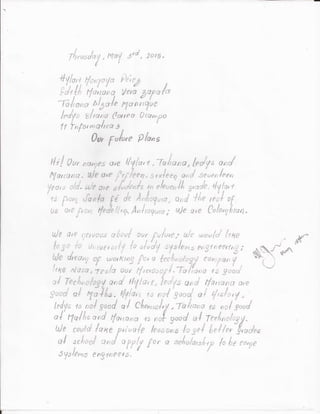 Thursday, May 3rd, 2018.
Hyllari Monsalve Pérez
Edith Mariana Vera Zapata
Tatiana Alzate Manrique
Leidys Eliana Correa Ocampo
11 Informatica 3
Our Future Plans
Hi! Our names are Hyllare, Tatiana, Leidys and
Mariana. We are fifteen, sixteen and seventeen
years old. We are students in eleventh grade. Hyllare
is from Santa Fé de Antioquia, and the rest of
us are from Medellín, Antioquia; We are Colombian.
We are curious about our future; We would like
to go to university to study systems engineering;
We dream of working for a technology company
like Nasa, Tesla our Microsoft. Tatiana is good
at Technology and Hyllare, Leidys and Mariana are
good at Maths. Hyllare is not good at History,
Leidys is not good at Chemistry, Tatiana is not good
at Maths and Mariana is not good at Technology.
We could take private lessons to get better grades
at school and apply for a scholarship to become
systems engineers.